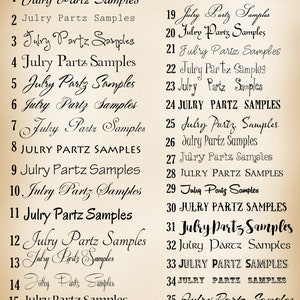 Julry Partz Samples
2 Julry Partz Samples
3 Julry Partz Samples
4 Julry Partz Samples
5 Julry Partz Samples
6 Julry Partz Samples
7 Julry Partz Samples
8 Julry Partz Samples
9 Julry Partz Samples
10 Julry Partz Samples
11 Julry Partz Samples
12 Julry Partz Samples
13 Julry Partz Samples
14 Julry Partz Samples
15 Julry Partz Samples
19 Julry Partz Samples
20 Julry Partz Samples
21 Julry Partz Samples
22 Julry Partz Samples
23 Julry Partz Samples
24 JULRY PARTZ SAMPLES
25 Julry Partz Samples
26 Julry Partz Samples
27 Julry Partz Samples
28 Julry Partz Samples
29 Julry Partz Samples
30 JULRY PARTZ SAMPLES
31 Julry Partz Samples
32 Julry Partz Samples
33 JULRY PARTZ SAMPLES
34 JULRY PARTZ SAMPLES
35 Julry Partz Samples